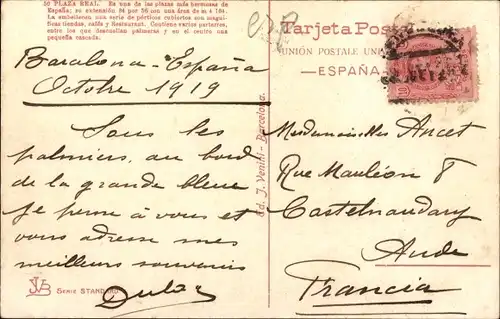 50 PLAZA REAL. Es una de las plazas más hermosas de
España; su extensión 84 por 56 con una área de m.s 164.
La embellecen una serie de pórticos cubiertos con magní-
ficas tiendas, cafés y Restaurant. Contiene varios parterres,
entre los que descuellan palmeras y en el centro una
pequeña cascada.
Barcelona - España
Octobre 1919
Sous les
palmiers, au bord
de la grande bleue
je pense à vous et
vous adresse mes
meilleurs souvenirs
JVB
SERIE STANDARD
Ed. J. Venini - Barcelona.
Tarjeta Postal
UNIÓN POSTALE
ESPAÑA
Mesdemoiselles Ancet
Rue Mauléon 8
Castelnaudary
Aude
Francia